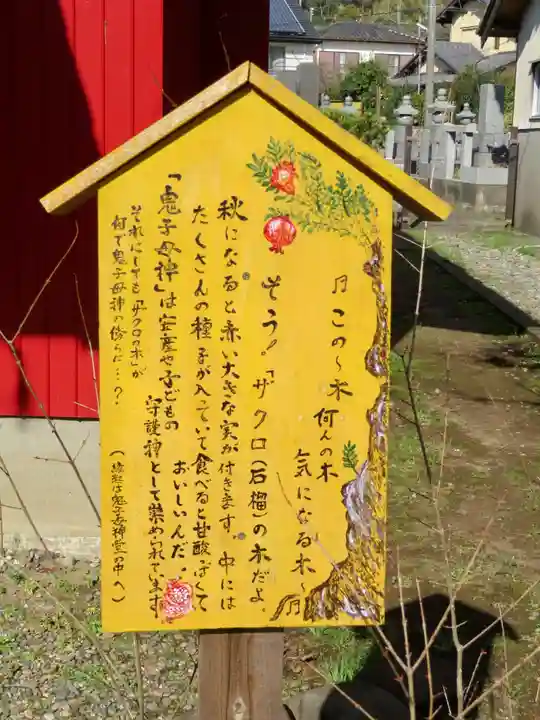 ♪この〜木何んの木
気になる木〜♪
そう!「ザクロ(石榴)の木だよ、
秋になると赤い大きな実が付きます。中には
たくさんの種子が入っていて食べると甘酸ぱくて
おいしいんだ。
「鬼子母神」は安産や子どもの
守護神として崇められています
それにしても「ザクロの木」が
何で鬼子母神の傍らに…?
(縁起は鬼子母神堂の中へ)